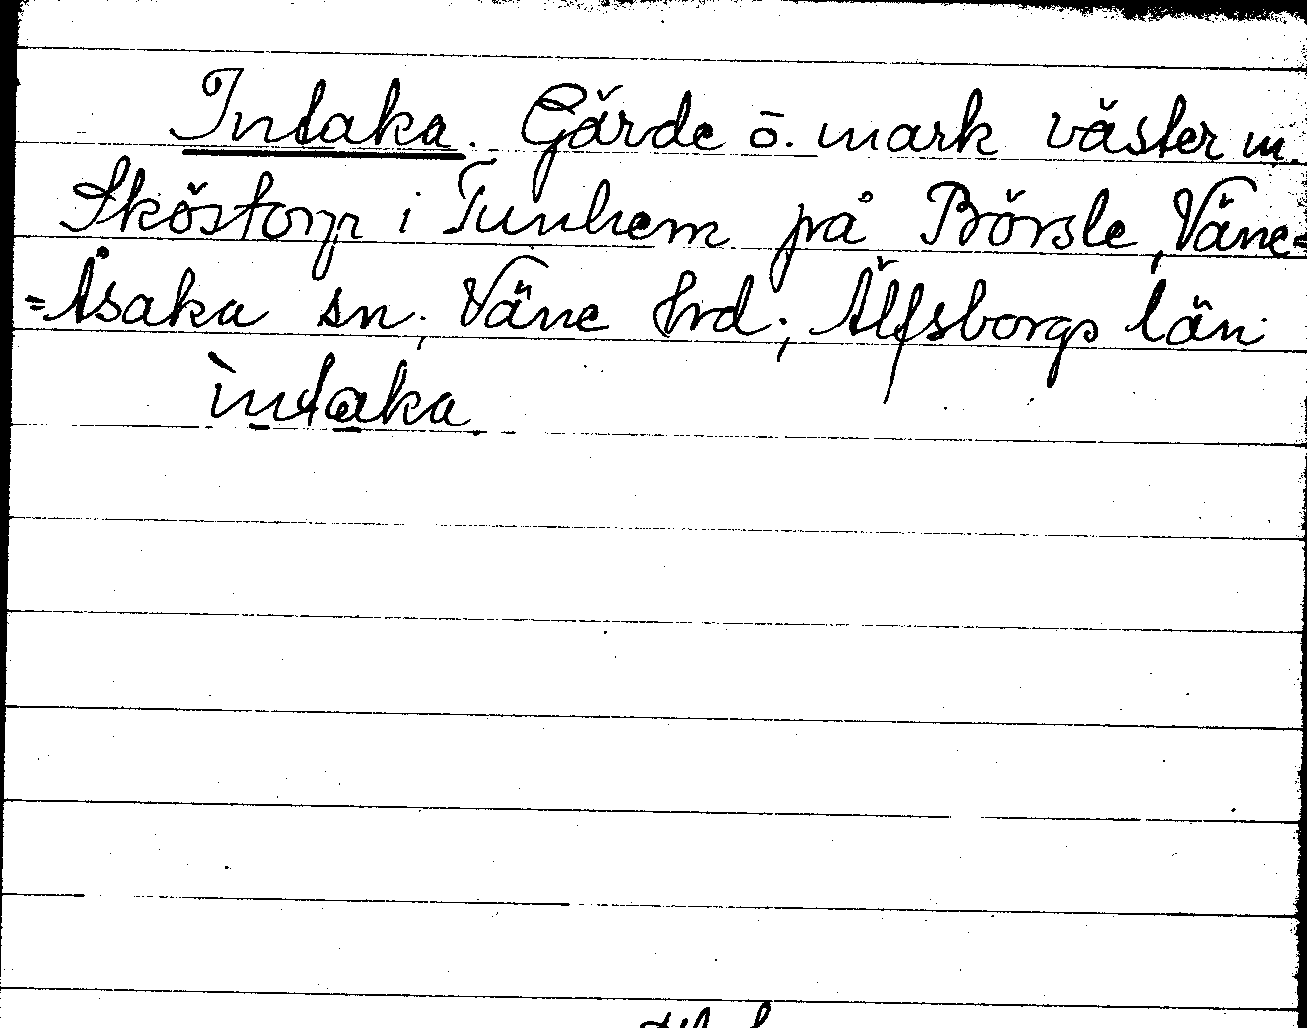 Intaka. Gärde o. mark väster m.
Sköstorp i Tunhem på Börsle, Väne=
=Åsaka sn; Väne hrd; Älfsborgs län
ìntaka.